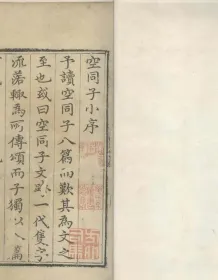 空同子小序
予讀空同子八篇而歎其為文之
至也或曰空同子文跡一代隻字
流落輒為所傳頌而子獨以八篇